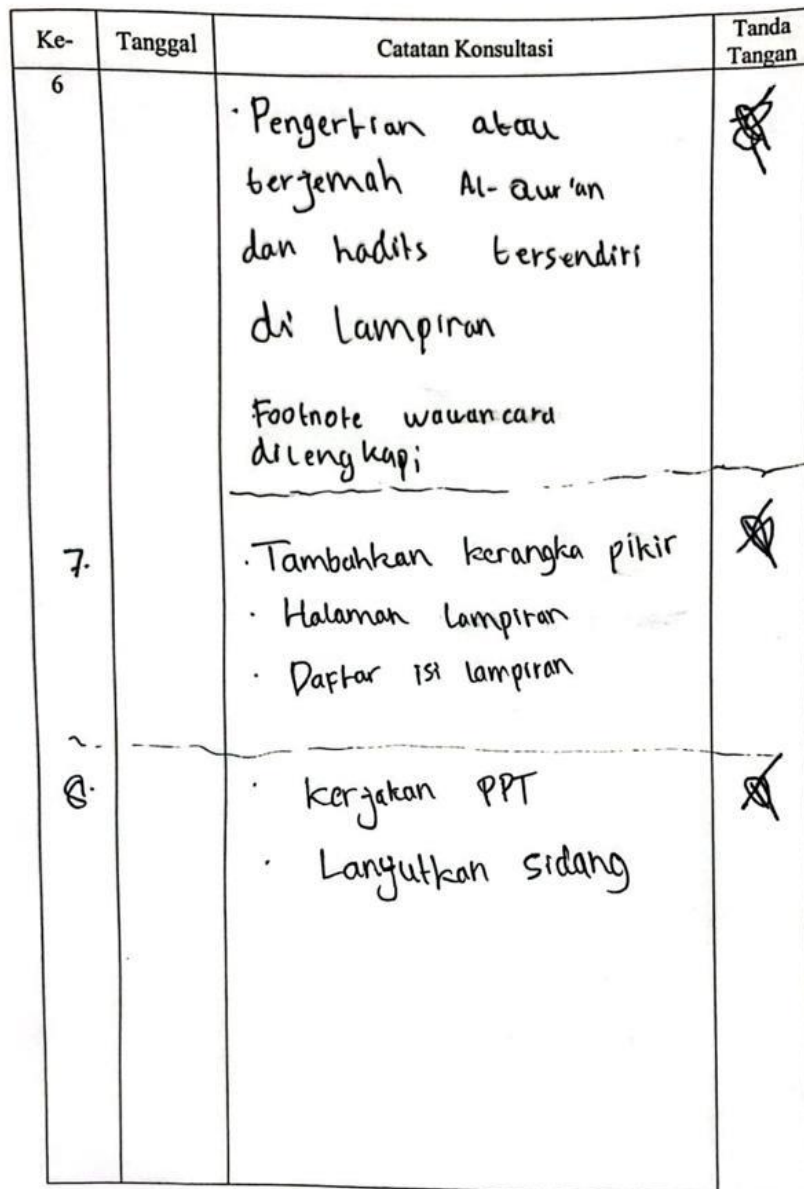 Ke- Tanggal Catatan Konsultasi Tanda Tangan
6
· Pengertian atau
terjemah Al-Qur'an
dan hadits tersendiri
di Lampiran
Footnote wawancara
dilengkapi
7.
· Tambahkan kerangka pikir
· Halaman lampiran
· Daftar isi lampiran
8.
· kerjakan PPT
· Lanjutkan sidang